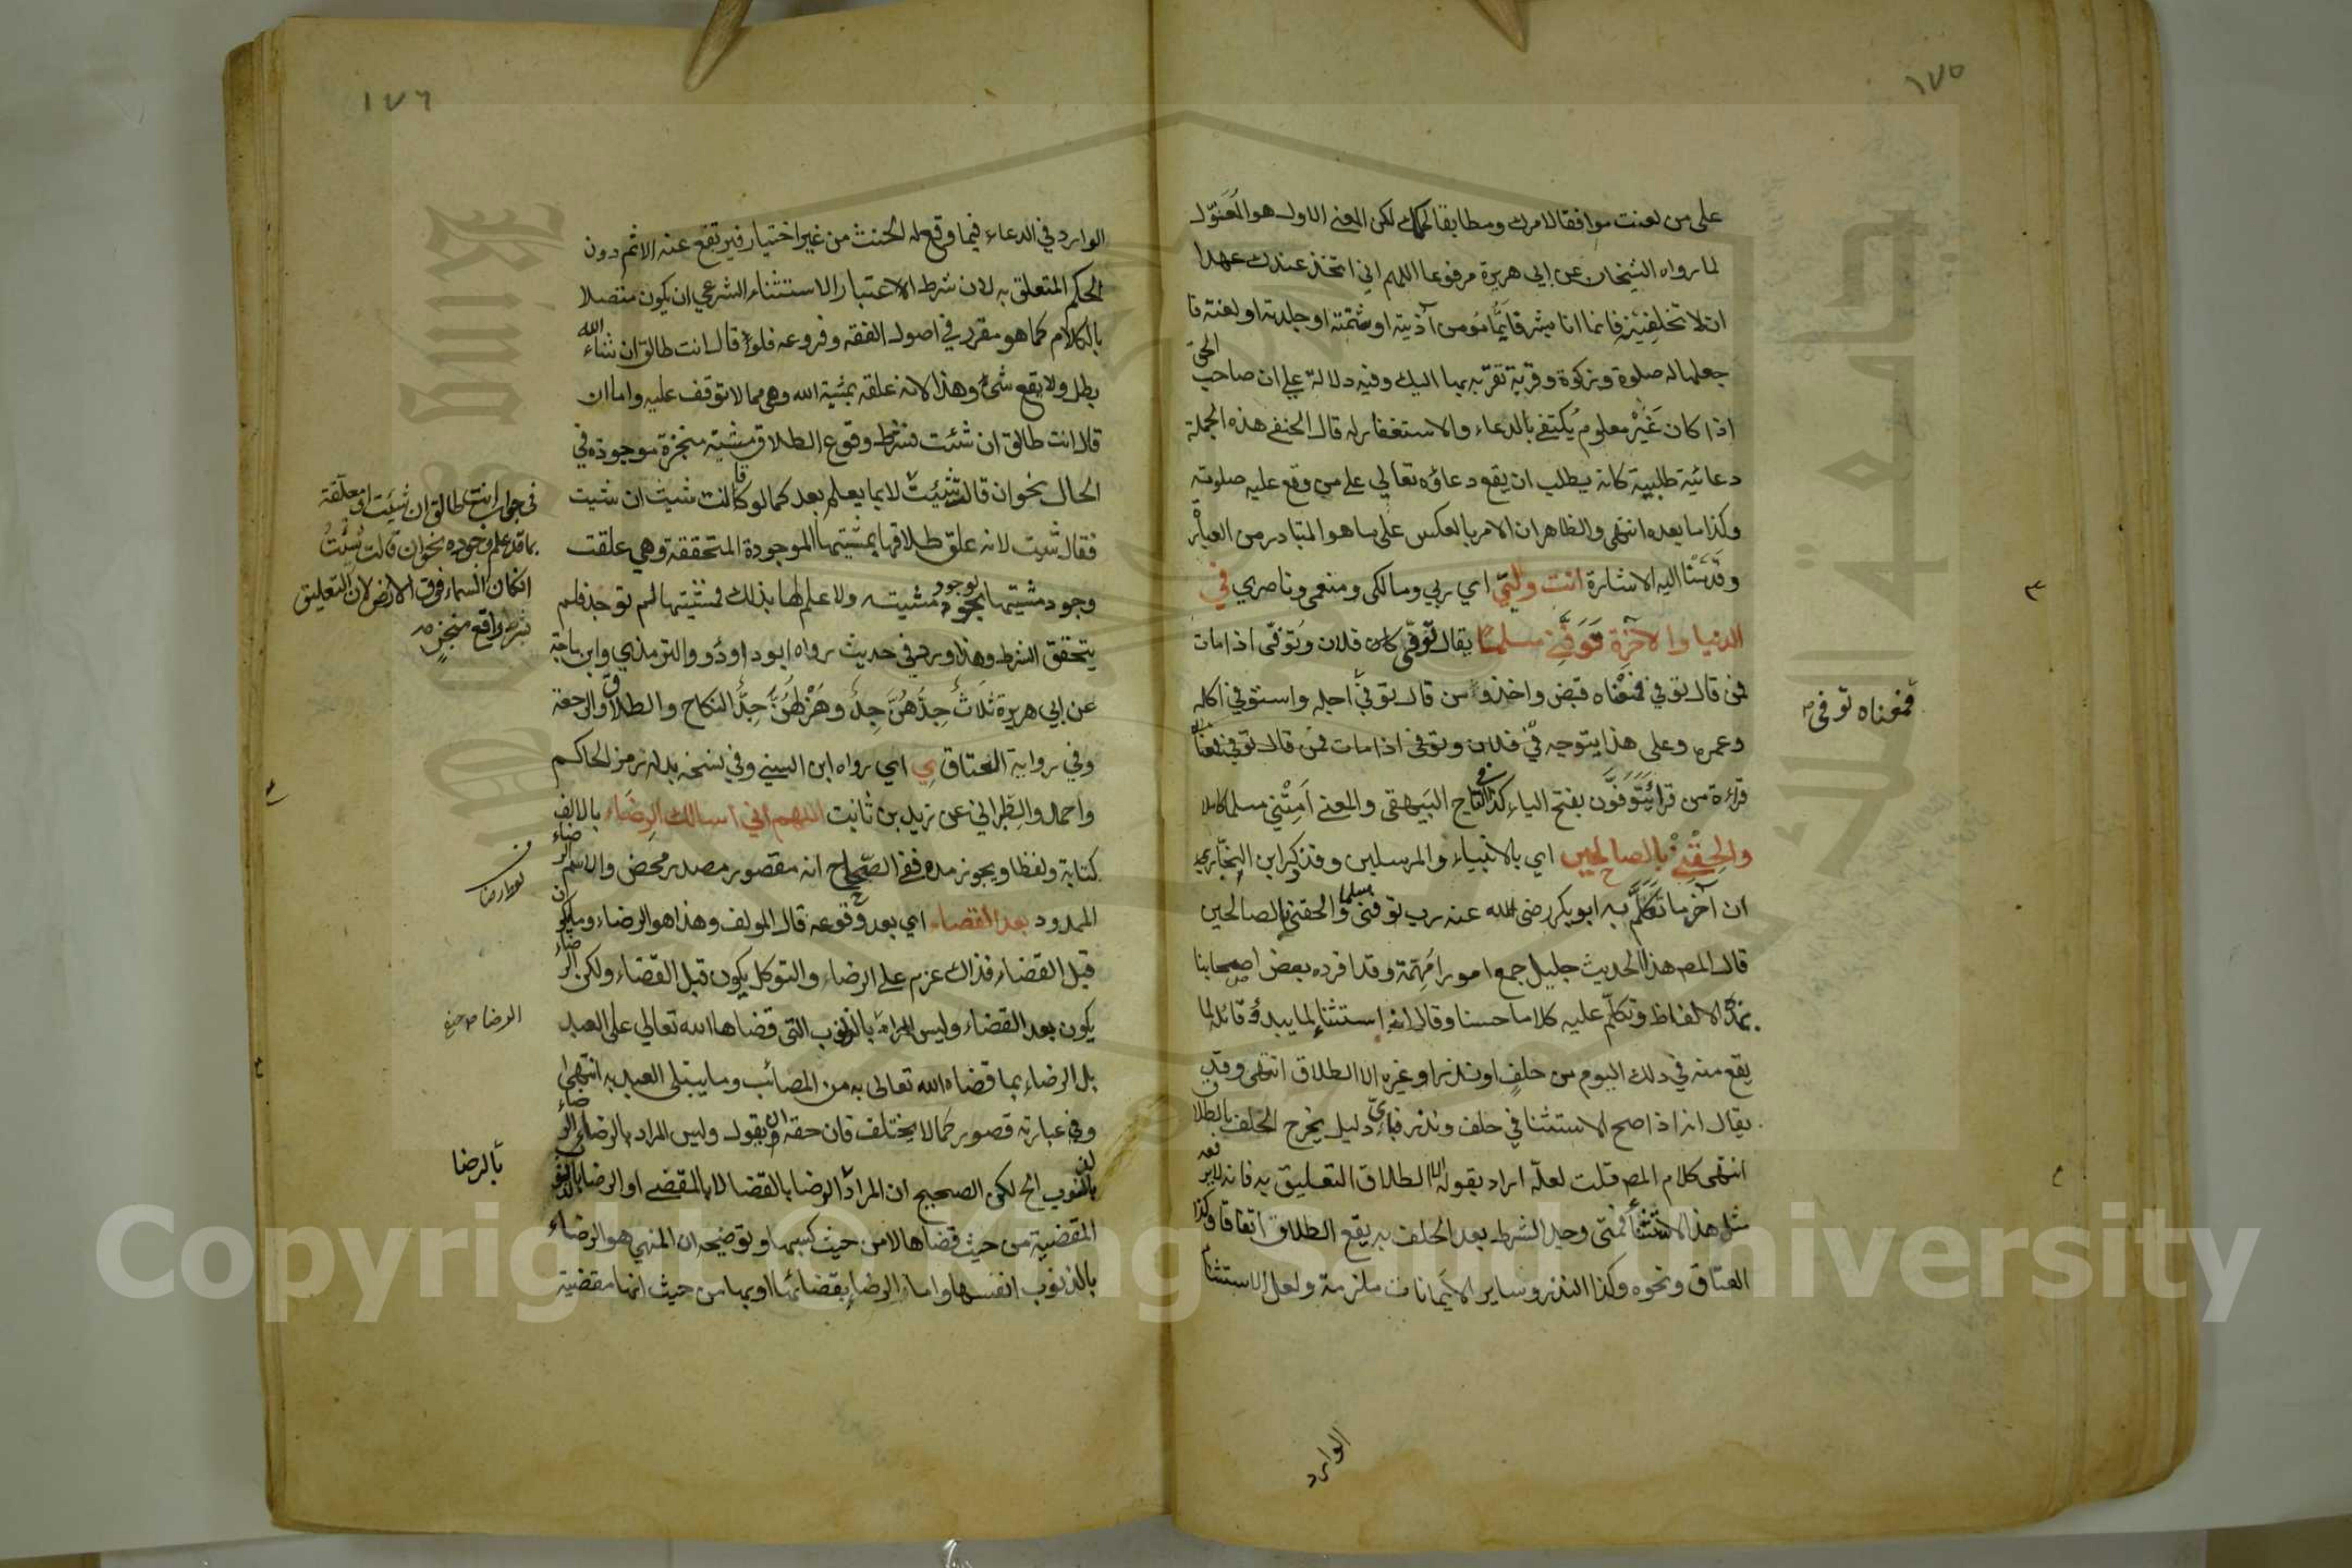 ١٧٥
على من لعنت موافقا لامرك ومطابقا لحكمك لكن المعنى الاول هو المعول
لما رواه الشيخان عن ابي هريرة مرفوعا اللهم اني اتخذ عندك عهدا
ان لا تخلفنيه فانما انا بشر فايما مؤمن آذيته او شتمته او جلدته او لعنته فا
جعلها له صلوة وزكوة وقربة تقربه بها اليك وفيه دلالة علي ان صاحب الحق
اذا كان غير معلوم يكتفى بالدعاء والاستغفار له قال الحنفي هذه الجملة
دعائية طلبية كانه يطلب ان يقع دعاؤه تعالي على من وقع عليه صلوته
وكذا ما بعده انتهى والظاهر ان الامر بالعكس على ما هو المتبادر من العبارة
وقدمنا اليه الاشارة انت وليّي اي ربي ومالكي ومنعمي وناصري في
الدنيا والآخرة توفّني مسلمًا يقال توفّى كان فلان وتوفّى اذا مات
فمن قال توفي فمعناه قبض واخذ ومن قال توفّي اجله واستوفي اكله
فمعناه توفى
وعمره وعلى هذا يتوجه في فلان وتوفى اذا مات فمن قال توفي فمعناه
قراءة من قرا يتوفون بفتح الياء كذا في التاج البيهقي والمعنى امتني مسلما كاملا
والحقني بالصالحين اي بالانبياء والمرسلين وقد ذكر ابن النجّاري
ان آخر ما تكلّم به ابو بكر رضى الله عنه رب توفني مسلما والحقني بالصالحين
قال المص هذا الحديث جليل جمع امورا مهمة وقد افرده بعض اصحابنا
بهذه الالفاظ وتكلّم عليه كلاما حسنا وقال انه استثناء لما يبدؤ قائله لما
يقع منه في ذلك اليوم من حلف او نذر او غيره الا الطلاق انتهى وقد
يقال انه اذا صح الاستثنا في حلف ونذر فباي دليل يخرج الحلف بالطلاق
انتهى كلام المص قلت لعلّه اراد بقوله الا الطلاق التعليق به فانه لا يرفعه
مثل هذا الاستثناء فمتى وجد الشرط بعد الحلف به يقع الطلاق اتفاقا وكذا
العتاق ونحوه وكذا النذر وساير الايمانات ملزمة ولعل الاستثناء
الوارد
١٧٦
الوارد في الدعاء فيما وقع له الحنث من غير اختيار فيرتفع عنه الاثم دون
الحكم المتعلق به لان شرط الاعتبار الاستثناء الشرعي ان يكون متصلا
بالكلام كما هو مقرر في اصول الفقه وفروعه فلو قال انت طالق ان شاء الله
بطل ولا يقع شئ وهذا لانه علقه بمشية الله وهي مما لا توقف عليه واما ان
قال انت طالق ان شئت فشرط وقوع الطلاق مشيته منجزة موجودة في
الحال نحو ان قالت شئت لا بما يعلم بعد كما لو قالت شيت ان شيت
في جواب انت طالق ان شئت او معلّقة
بما قد علم وجوده نحو ان قالت شئت
ان كان السماء فوق الارض لان التعليق
بشرط واقع منجز
فقال شيت لانه علّق طلاقها بمشيتها الموجودة المتحققة وهي علقت
وجود مشيتها بوجود مشيته ولا علم لها بذلك فمشيتها لم توجد فلم
يتحقق الشرط وهذا ورد في حديث رواه ابو داوُد والترمذي وابن ماجة
عن ابي هريرة ثلاث جدّهن جد وهزلهن جدّ النكاح والطلاق والرجعة
وفي رواية العتاق ي اي رواه ابن السني وفي نسخة بدله رمز الحاكم
واحمد والطبراني عن زيد بن ثابت اللهم اني اسالك الرضاء بالالف
كتابة ولفظا ويجوز مده ففي الصّحاح انه مقصور مصدر محض والاسم الرضاء
الممدود بعد القضاء اي بعد وقوعه قال المولف وهذا هو الرضاء وما يكون
قبل القضاء فذاك عزم على الرضاء والتوكل يكون قبل القضاء ولكن الرضاء
يكون بعد القضاء وليس المراد بالذنوب التى قضاها الله تعالي على العبد
بل الرضاء بما قضاه الله تعالى به من المصائب وما يبتلى العبد به انتهى
وفي عبارته قصور كما لا يختلف فان حقه ان يقول وليس المراد بالرضاء الرضاء
بالرضا
بالذنوب الخ لكن الصحيح ان المراد الرضا بالقضا لا بالمقضى او الرضا بالذنوب
المقضية من حيث قضاها لا من حيث كسبها وتوضيحه ان المنهي هو الرضاء
بالذنوب انفسها واما الرضاء بقضائها او بها من حيث انها مقضية
Copyright © King Saud University